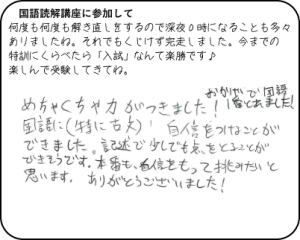 国語読解講座に参加して
何度も何度も解き直しをするので深夜0時になることも多々
ありましたね。それでもくじけず完走しました。今までの
特訓にくらべたら「入試」なんて楽勝です♪
楽しんで受験してきてね。
めちゃくちゃ力がつきました!おかげで国語
国語に(特に古文)自信をつけることが
できました。記述で少しでも点をとることが
できそうです。本番も、自信をもって挑みたいと
思います。ありがとうございました!